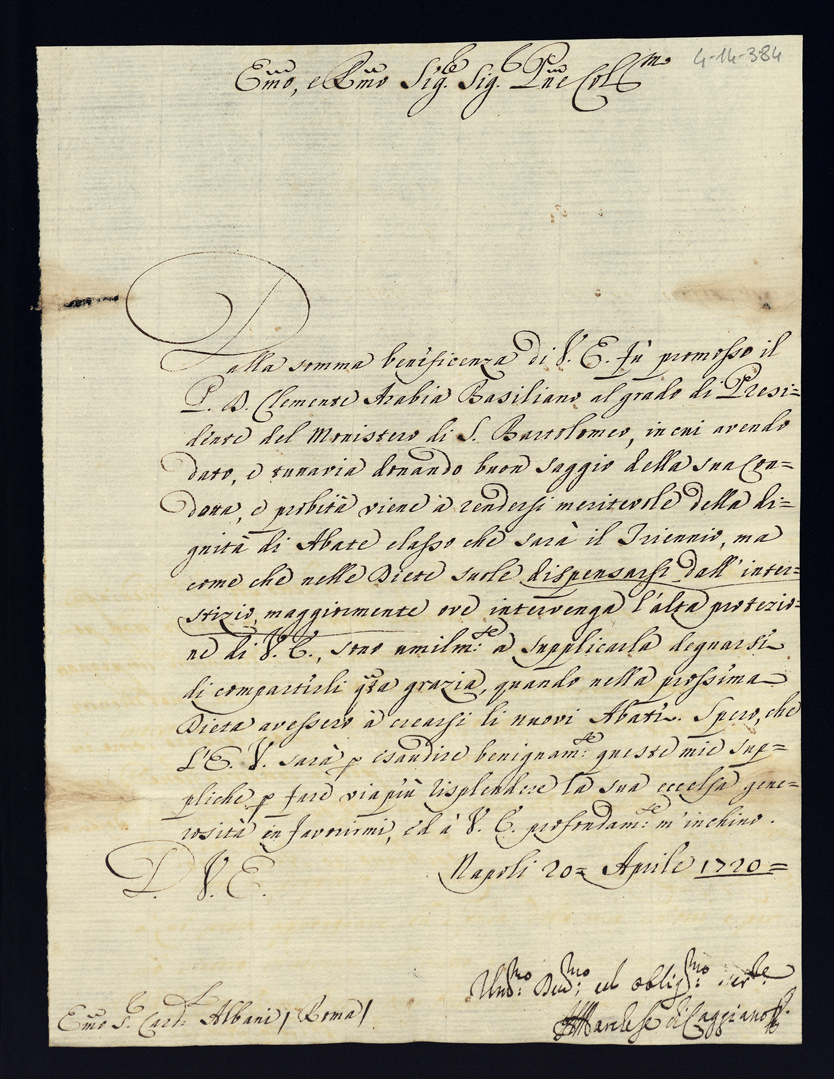 4-14-384
Emo, e Rmo Sig.re Sig.r Pne Col.mo
Dalla somma beneficenza di V. E. fù promosso il
P. D. Clemente Arabia Basiliano al grado di Presi=
dente del Monistero di S. Bartolomeo, in cui avendo
dato, e tuttavia donando buon saggio della sua Con=
dotta, e probità viene à rendersi meritevole della di=
gnità di Abate elasso che sarà il Triennio, ma
come che nelle Diete suole dispensarsi dall' inter=
stizio, maggiormente ove intervenga l'alta protezio=
ne di V. E., sono umilm:te a supplicarla degnarsi
di compartirli qsta grazia, quando nella prossima
Dieta avessero à crearsi li nuovi Abati. Spero, che
L'E. V. sarà p esaudire benignam:te queste mie sup=
pliche p fare viapiù risplendere la sua eccelsa gene=
rosità in favorirmi, ed à V. E. profondam:te m'inchino.
D. V. E. Napoli 20= Aprile 1720=
Um:mo Dev:mo ed oblig:mo ser:re
Il Marchese di Caggiano
Emo S.r Card.l Albani / Roma /